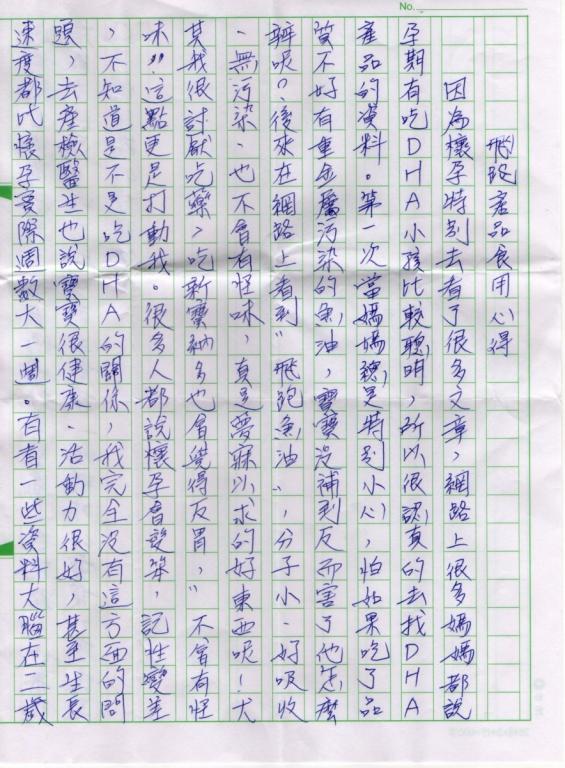 No.
飛跑產品食用心得
因為懷孕特別去看了很多文章，網路上很多媽媽都說
孕期有吃DHA小孩比較聰明，所以很認真的去找DHA
產品的資料。第一次當媽媽總是特別小心，怕如果吃了品
質不好有重金屬污染的魚油，寶寶沒補到反而害了他怎麼
辦呢？後來在網路上看到"飛跑魚油"，分子小、好吸收
、無污染、也不會有怪味，真是夢寐以求的好東西呢！尤
其我很討厭吃藥，吃新寶納多也會覺得反胃，"不會有怪
味"這點更是打動我。很多人都說懷孕會變笨，記性變差
，不知道是不是吃DHA的關係，我完全沒有這方面的問
題，去產檢醫生也說寶寶很健康、活動力很好，甚至生長
速度都比懷孕實際週數大一週。有看一些資料大腦在二歲